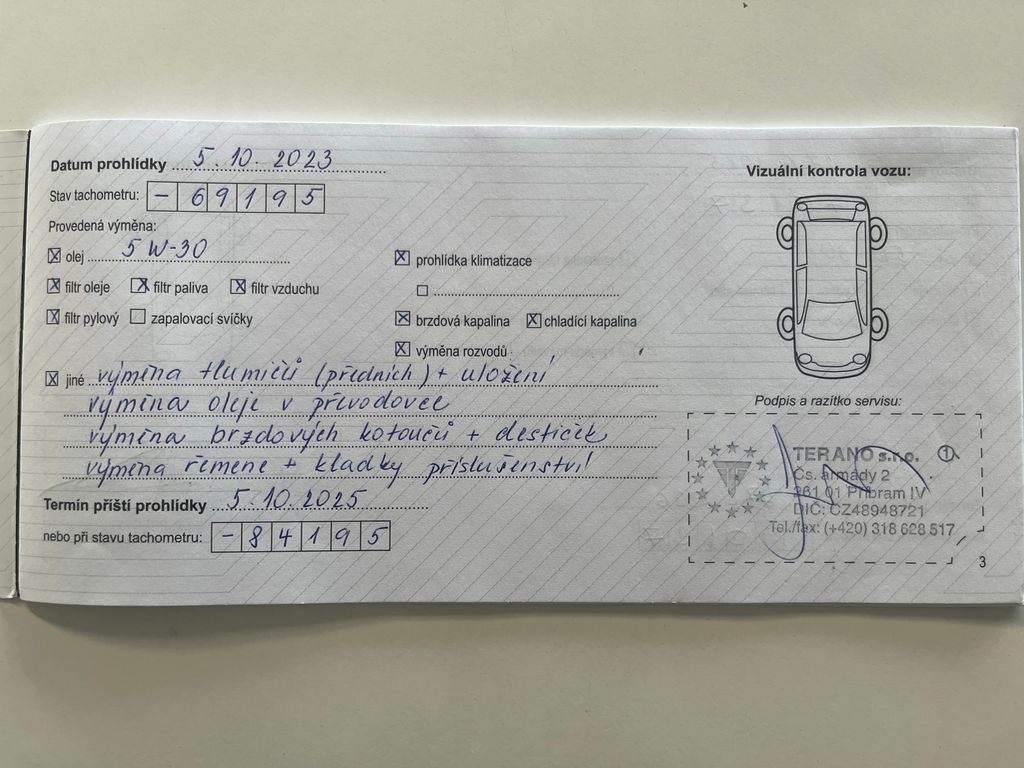 Datum prohlídky 5. 10. 2023
Stav tachometru: - 6 9 1 9 5
Provedená výměna:
☒ olej 5W-30
☒ filtr oleje ☒ filtr paliva ☒ filtr vzduchu
☒ filtr pylový ☐ zapalovací svíčky
☒ prohlídka klimatizace
☐
☒ brzdová kapalina ☒ chladící kapalina
☒ výměna rozvodů
☒ jiné výměna tlumičů (předních) + uložení
výměna oleje v převodovce
výměna brzdových kotoučů + destiček
výměna řemene + kladky příslušenství
Termín příští prohlídky 5. 10. 2025
nebo při stavu tachometru: - 8 4 1 9 5
Vizuální kontrola vozu:
Podpis a razítko servisu:
TERANO s.r.o. 1
Čs. armády 2
261 01 Příbram IV
DIČ: CZ48948721
Tel./fax: (+420) 318 628 517
3